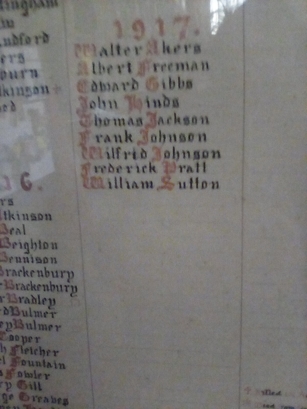 tingham
ndford
ers
ourn
lkinson
ed
6.
rs
tkinson
Beal
Beighton
Bennison
Brackenbury
Brackenbury
r Bradley
d Bulmer
ey Bulmer
Cooper
h Fletcher
l Fountain
s Fowler
ep Gill
ge Greaves
1917.
Walter Akers
Albert Freeman
Edward Gibbs
John Hinds
Thomas Jackson
Frank Johnson
Wilfrid Johnson
Frederick Pratt
William Sutton